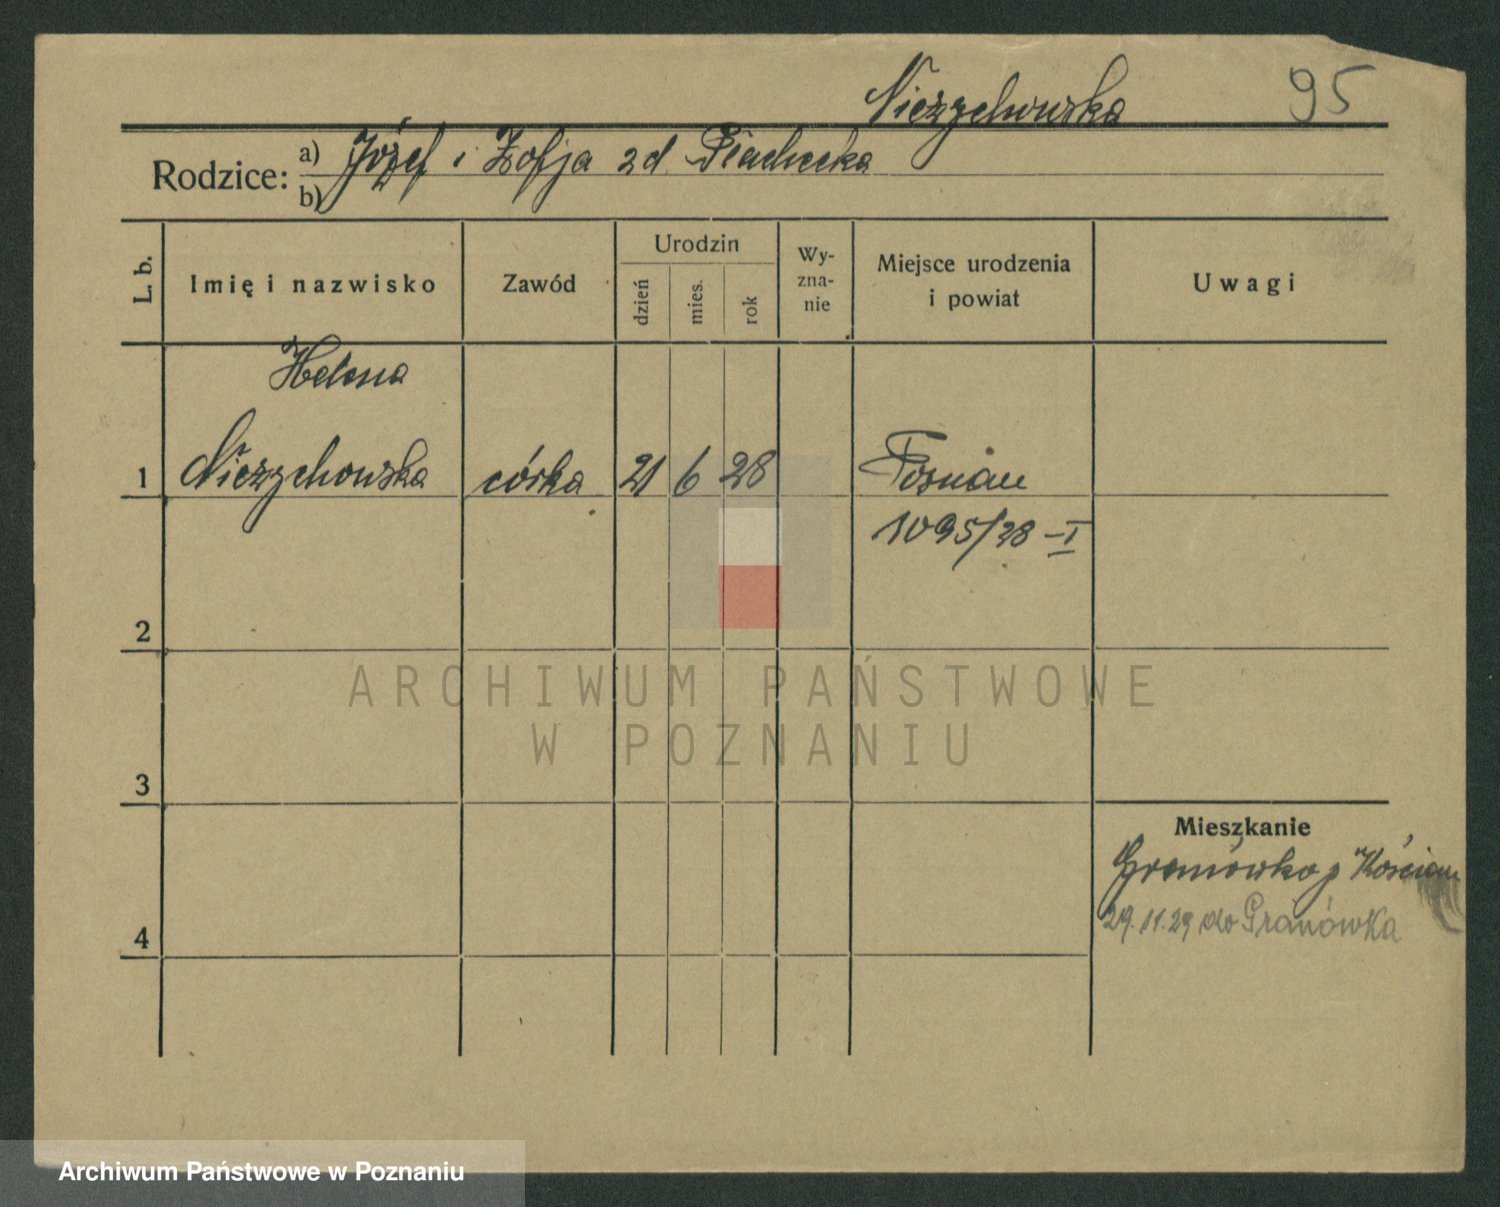 Nieżychowska 95
Rodzice: a) Józef i Zofja zd
b)
L. b. Imię i nazwisko Zawód Urodzin dzień mies. rok Wy-zna-nie Miejsce urodzenia i powiat Uwagi
Helena
1 Nieżychowska córka 21 6 28 Poznań
1095/28 – I
2
ARCHIWUM PAŃSTWOWE
W POZNANIU
3
Mieszkanie
Granówko p Kościan
29.11.29 do Granówka
4
Archiwum Państwowe w Poznaniu